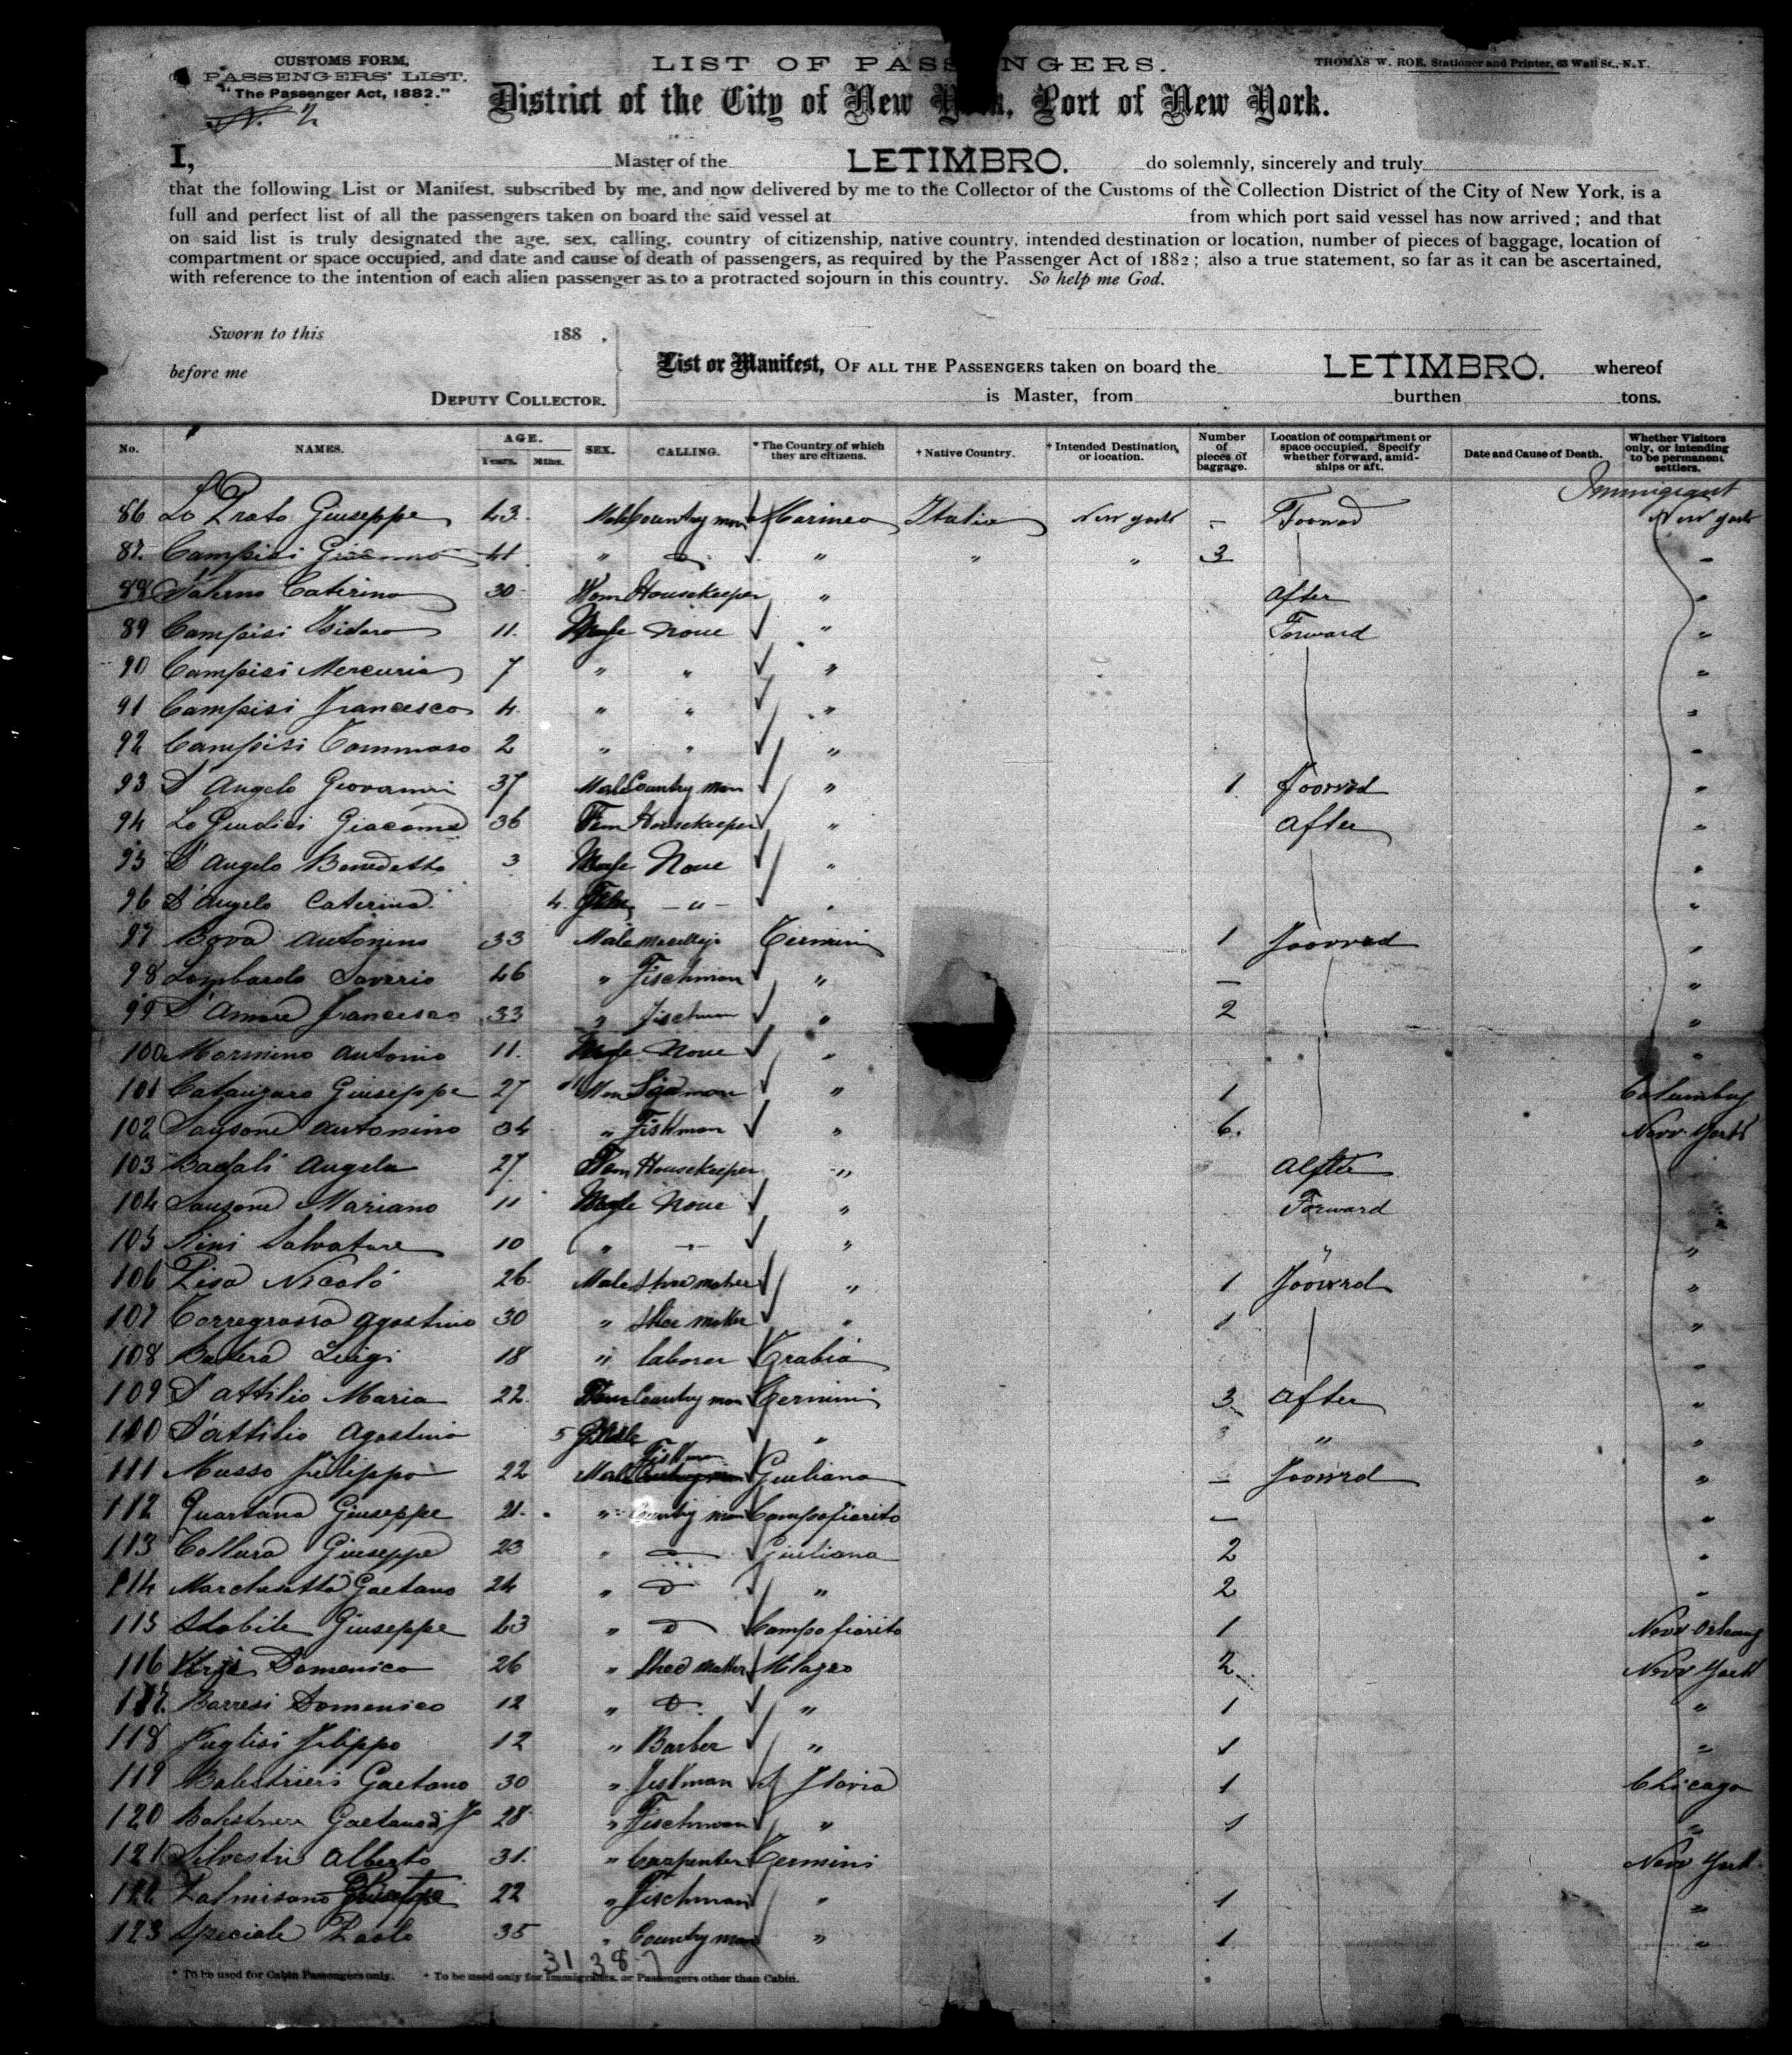 CUSTOMS FORM,
PASSENGERS' LIST.
"The Passenger Act, 1882."
N. 2
LIST OF PASSENGERS.
THOMAS W. ROE, Stationer and Printer, 63 Wall St., N.Y.
District of the City of New York, Port of New York.
I, Master of the LETIMBRO. do solemnly, sincerely and truly
that the following List or Manifest, subscribed by me, and now delivered by me to the Collector of the Customs of the Collection District of the City of New York, is a
full and perfect list of all the passengers taken on board the said vessel at from which port said vessel has now arrived; and that
on said list is truly designated the age, sex, calling, country of citizenship, native country, intended destination or location, number of pieces of baggage, location of
compartment or space occupied, and date and cause of death of passengers, as required by the Passenger Act of 1882; also a true statement, so far as it can be ascertained,
with reference to the intention of each alien passenger as to a protracted sojourn in this country. So help me God.
Sworn to this 188 .
before me
DEPUTY COLLECTOR.
List or Manifest, OF ALL THE PASSENGERS taken on board the LETIMBRO. whereof
is Master, from burthen tons.
No. NAMES. AGE. Years. Mths. SEX. CALLING. * The Country of which they are citizens. † Native Country. † Intended Destination, or location. Number of pieces of baggage. Location of compartment or space occupied. Specify whether forward, amidships or aft. Date and Cause of Death. Whether Visitors only, or intending to be permanent settlers.
Immigrant
86 Lo Prato Giuseppe 43 Male Country man Marineo Italia New York - Foorward New York
87. Campisi 41 " " " " " 3 "
88 Salerno Caterina 30 Fem Housekeeper " After "
89 Campisi Isidoro 11. Male None " Forward "
90 Campisi Mercurio 7 " " " "
91 Campisi Francesco 4 " " " "
92 Campisi Tommaso 2 " " " "
93 D'Angelo Giovanni 37 Male Country man " 1. Foorwrd "
94 Lo Giudici Giacoma 36 Fem Housekeeper " After "
95 D'Angelo Benedetto 3 Male None " "
96 D'Angelo Caterina 4. Fem - " - " "
97 Bova Antonino 33 Male Termini 1 Foorwrd "
98 Lombardo Saverio 46 " Fischman " - "
99 D'Amore Francesco 33 " Fischman " 2 "
100 Mormino Antonio 11. Male None " "
101 Catanzaro Giuseppe 27 Man " 1 Columbus
102 Sansone Antonino 34 " Fishman " 6. New York
103 Badali Angela 27 Fem Housekeeper " After
104 Sansone Mariano 11 Male None " Forward
105 Nini Salvatore 10 " - " " "
106 Pisa Nicolò 26 Male Shoemaker " 1 Foorwrd "
107 Torregrossa Agostino 30 " Shoe maker " 1 "
108 Luigi 18 " laborer Trabia "
109 D'Attilio Maria 22 Fem Country man Termini 3 After "
110 D'Attilio Agostino 5 " " "
111 Musso Filippo 22 Male Fishman Giuliana - Foorwrd "
112 Quartana Giuseppe 21. " Country man Campofiorito - "
113 Collura Giuseppe 23 " Giuliana 2 "
114 Gaetano 24 " " 2 "
115 Stabile Giuseppe 43 " Campofiorito 1 New Orleans
116 Domenico 26 " Shoe maker Milazzo 2 New York
117. Barresi Domenico 12 " " 1 "
118 Puglisi Filippo 12 " Barber " 1 "
119 Balestrieri Gaetano 30 " Fishman 1 Chicago
120 Balestrieri Gaetano di 28 " Fischman " 1 "
121 Silvestri Alberto 31. " Carpenter Termini New York
122 Palmisano 22 " Fischman " 1 "
123 Speciale Paolo 35 " Country man " 1 "
31 38 7
* To be used for Cabin Passengers only. † To be used only for Immigrants, or Passengers other than Cabin.